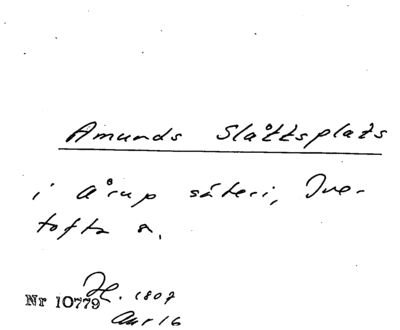 Amunds Slåttsplats
i Årup säteri, Ive-
tofta s.
H. 1807
Nr 10779
Avr 16